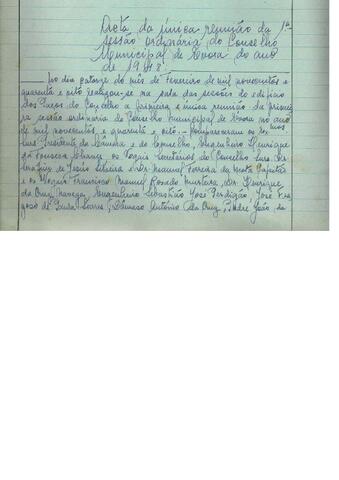 Acta da única reunião da 1ª
sessão ordinária do Conselho
Municipal de Évora do ano
de 1948
No dia catorze do mês de Fevereiro de mil novecentos e
quarenta e oito realizou-se na sala das sessões do edifício
dos Paços do Concelho a primeira e única reunião da primei
ra sessão ordinária do Conselho Municipal de Évora no ano
de mil novecentos e quarenta e oito. Compareceram os Ex.mos
Presidente da Câmara e do Conselho, Engenheiro Henrique
da Fonseca Chaves, os Vogais Secretários do Conselho
de Jesus e Dr. Manuel Ferreira da Mota
e os Vogais Francisco Manuel Rosado Murteira, Dr. Henrique
da Cruz, Engenheiro Sebastião José Perdigão, José
de Soares, António da Cruz, Padre João de